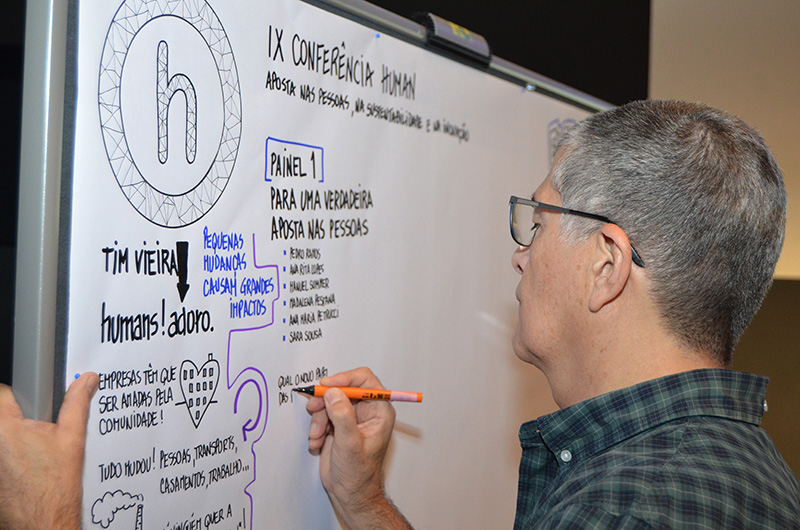 h
IX CONFERÊNCIA HUMAN
APOSTA NAS PESSOAS, NA SUSTENTABILIDADE E NA INOVAÇÃO
PAINEL 1
PARA UMA VERDADEIRA
APOSTA NAS PESSOAS
PEDRO RAMOS
ANA RITA LOPES
MANUEL SOMMER
MADALENA PESTANA
ANA MARIA PETRUCCI
SARA SOUSA
TIM VIEIRA
humans! adoro.
PEQUENAS
MUDANÇAS
CAUSAM GRANDES
IMPACTOS
EMPRESAS TÊM QUE
SER AMADAS PELA
COMUNIDADE!
TUDO MUDOU! PESSOAS, TRANSPORTS,
CASAMENTOS, TRABALHO...
NINGUÉM QUER A
QUAL O NOVO PAPEL
DAS